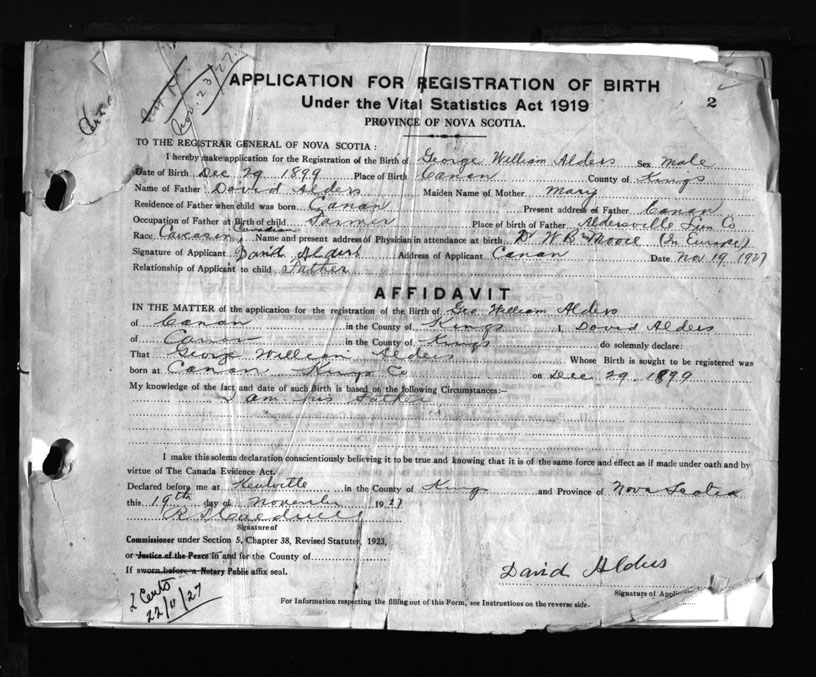 Certs
Nov. 23/27.
APPLICATION FOR REGISTRATION OF BIRTH
Under the Vital Statistics Act 1919
2
PROVINCE OF NOVA SCOTIA.
TO THE REGISTRAR GENERAL OF NOVA SCOTIA :
I hereby make application for the Registration of the Birth of George William Alders Sex male
Date of Birth Dec 29 1899 Place of Birth Canan County of Kings
Name of Father David Alders Maiden Name of Mother Mary
Residence of Father when child was born Canan Present address of Father Canan
Occupation of Father at Birth of child Farmer Place of birth of Father Aldersville Lun Co
Race Canadian Name and present address of Physician in attendance at birth Dr W B Moore (In Europe)
Signature of Applicant David Alders Address of Applicant Canan Date Nov 19 1927
Relationship of Applicant to child Father
AFFIDAVIT
IN THE MATTER of the application for the registration of the Birth of Geo William Alders
of Canan in the County of Kings I, David Alders
of Canan in the County of Kings do solemnly declare:
That George William Alders Whose Birth is sought to be registered was
born at Canan Kings Co on Dec 29 1899
My knowledge of the fact and date of such Birth is based on the following Circumstances:—
I am his Father
I make this solemn declaration conscientiously believing it to be true and knowing that it is of the same force and effect as if made under oath and by
virtue of The Canada Evidence Act.
Declared before me at Kentville in the County of Kings and Province of Nova Scotia
this 19th day of November 1927
Signature of
Commissioner under Section 5, Chapter 38, Revised Statutes, 1923,
or Justice of the Peace in and for the County of
If sworn before a Notary Public affix seal.
David Alders
Signature of Appli
2 Certs
22/11/27
For Information respecting the filling out of this Form, see Instructions on the reverse side.